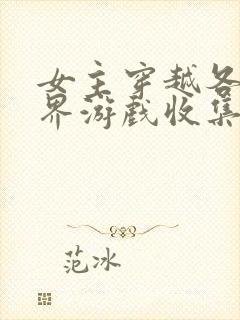 女主穿越各
界游戏收集
范冰